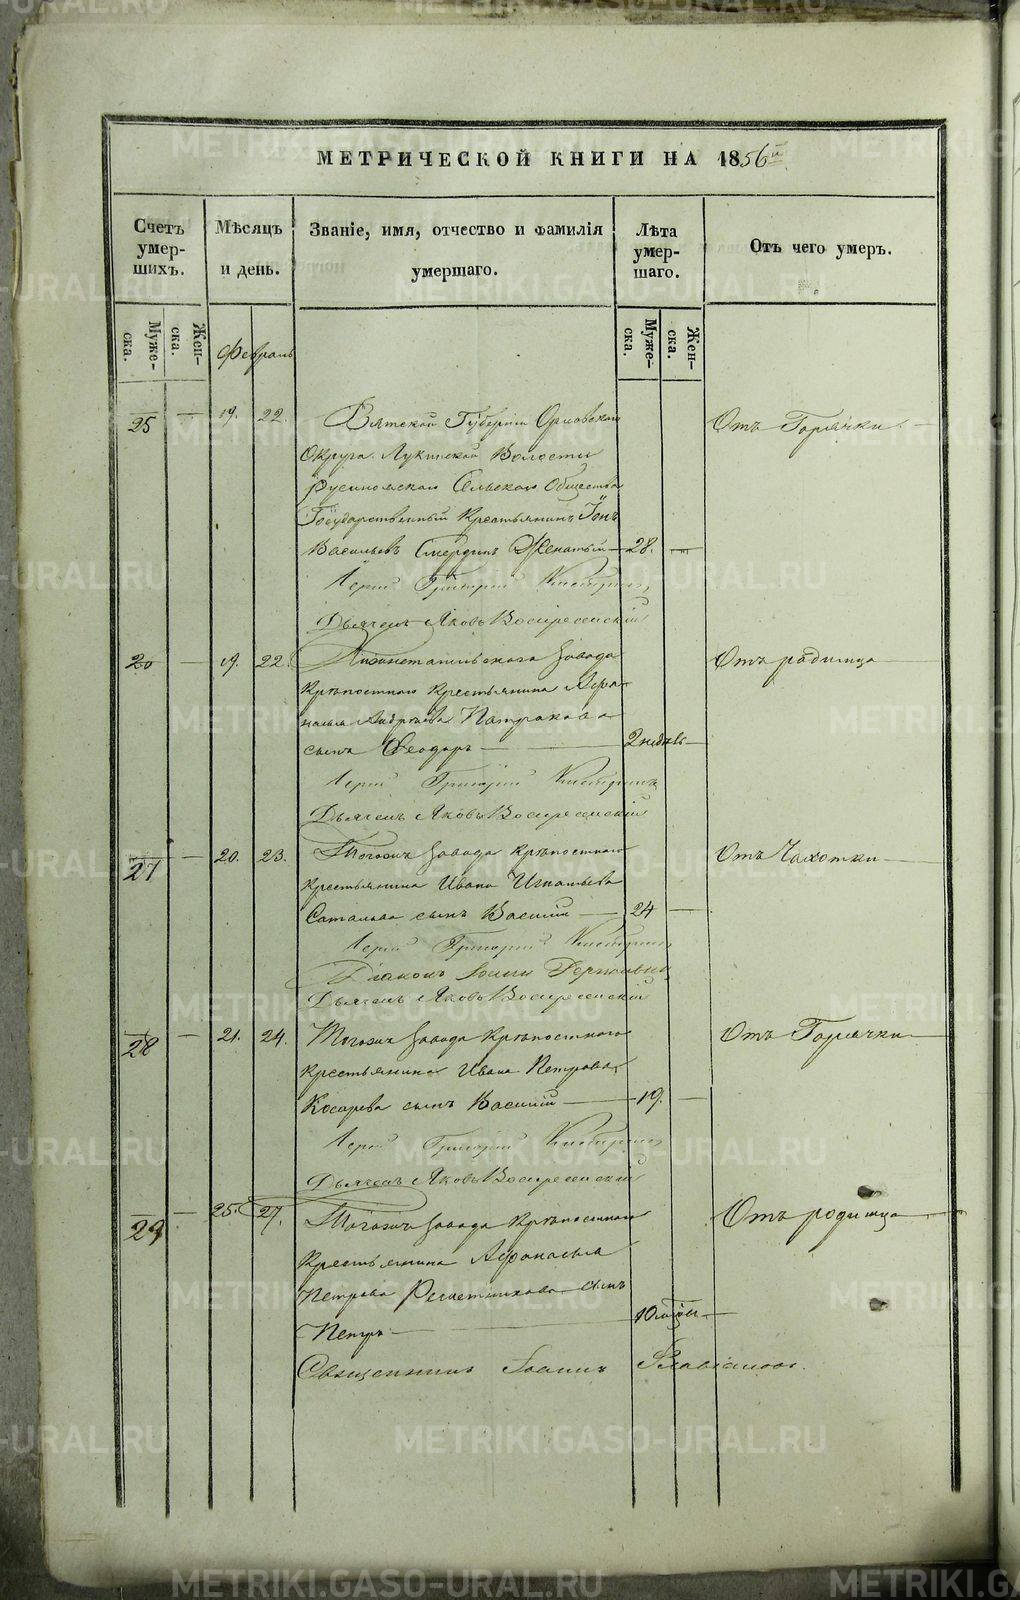 МЕТРИЧЕСКОЙ КНИГИ НА 1856й
Счетъ умер- шихъ.
Мѣсяцъ и день.
Званіе, имя, отчество и фамилія умершаго.
Лѣта умер- шаго.
Отъ чего умеръ.
Муже- ска.
Жен- ска.
Муже- ска.
Жен- ска.
Февраль
25 — 19. 22. Вятской Губерніи Орловскаго Отъ Горячки
Округа Лукинской Волости
Сельскаго Общества
Государственный Крестьянинъ Іонъ
Васильевъ Смердинъ Женатый — 28. —
Іерей Григорій
Дьячекъ Яковъ Воскресенскій
26 — 19. 22. Нижнетагильскаго Завода Отъ родимца
Крѣпостнаго Крестьянина Афа-
насья Андреева Патракова
сынъ Феодоръ — 2 недѣль —
Іерей Григорій
Дьячекъ Яковъ Воскресенскій
27 — 20. 23. Тогожъ Завода Крѣпостнаго Отъ Чахотки
Крестьянина Ивана Игнатьева
сынъ Василій — 24 —
Іерей Григорій
Діаконъ
Дьячекъ Яковъ Воскресенскій
28 — 21. 24. Тогожъ Завода Крѣпостнаго Отъ Горячки
Крестьянина Ивана Петрова
Косарева сынъ Василій — 19. —
Іерей Григорій
Дьячекъ Яковъ Воскресенскій
29 — 25. 27. Тогожъ Завода Крѣпостнаго Отъ родимца
Крестьянина Афонасья
Петрова Решетникова сынъ
Петръ — 10 мѣсяц. —
Священникъ Іоаннъ
METRIKI.GASO-URAL.RU